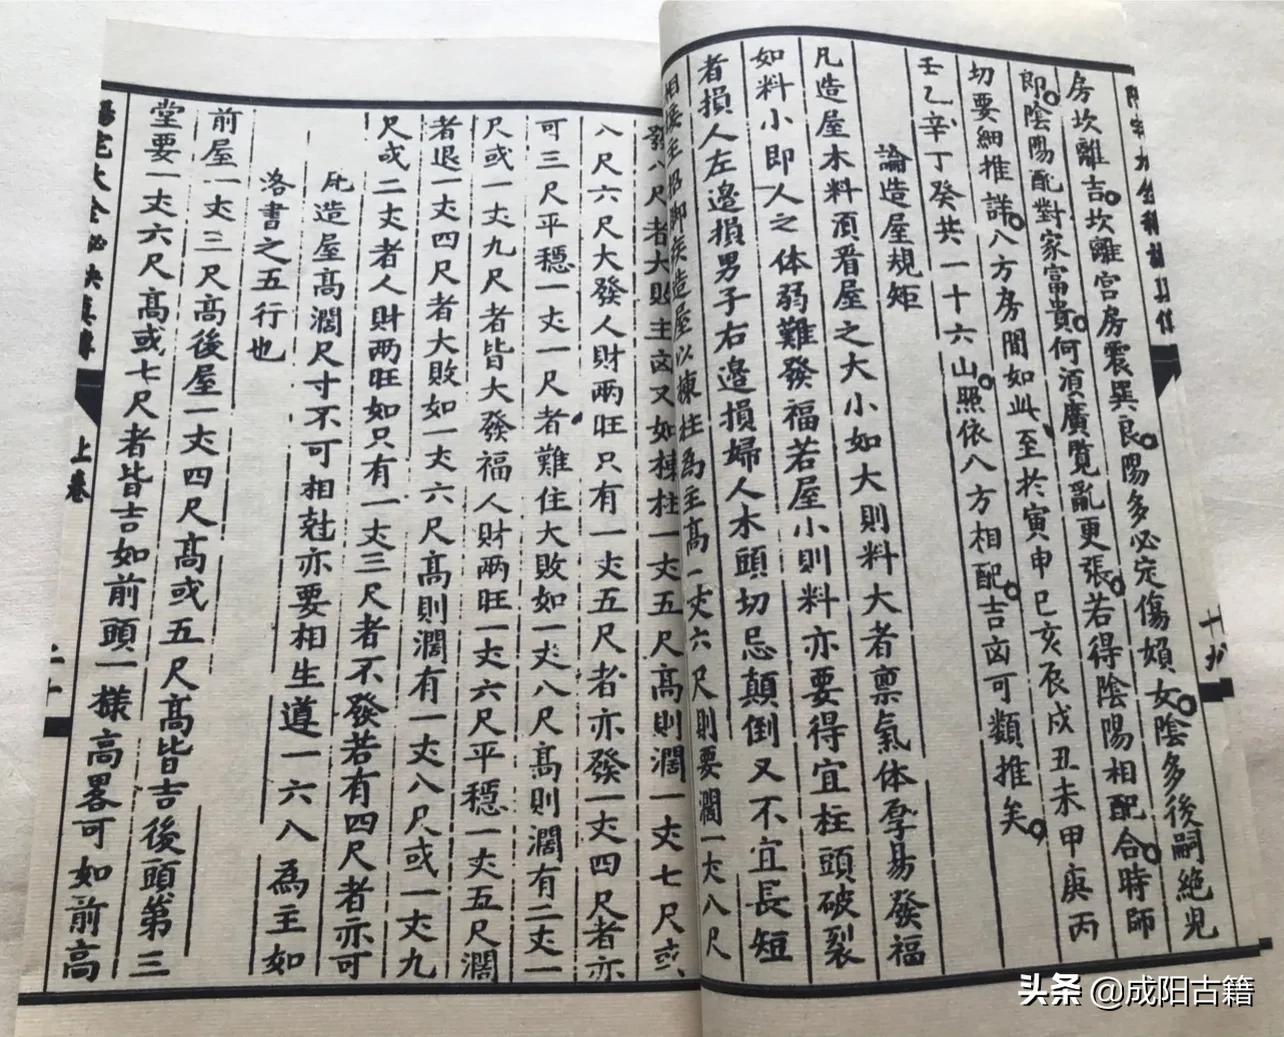 十九
房坎離吉。坎離宮房震巽良。陽多必定傷嬪女。陰多後嗣絶児
即。陰陽配對家富貴。何須廣覧亂更張。若得陰陽相配合。時師
切要細推詳。八方房間如此至於寅申巳亥辰戌丑未甲庚丙
壬乙辛丁癸共一十六山。照依八方相配。吉凶可類推矣。
論造屋規矩
凡造屋木料須看屋之大小如大則料大者禀氣体孕易發福
如料小即人之体弱難發福若屋小則料亦要得宜柱頭破裂
者損人左邊損男子右邊損婦人木頭切忌顛倒又不宜長短
相接主招疾造屋以棟柱為主高一丈六尺則要濶一丈八尺
發八尺者大敗主凶又如棟柱一丈五尺高則濶一丈七尺或
八尺六尺大發人財兩旺只有一丈五尺者亦發一丈四尺者亦
可三尺平穩一丈一尺者難住大敗如一丈八尺高則濶有二丈一
尺或一丈九尺者皆大發福人財兩旺一丈六尺平穩一丈五尺濶
者退一丈四尺者大敗如一丈六尺高則濶有一丈八尺或一丈九
尺或二丈者人財兩旺如只有一丈三尺者不發若有四尺者亦可
凡造屋高濶尺寸不可相尅亦要相生遵一六八為主如
洛書之五行也
前屋一丈三尺高後屋一丈四尺高或五尺高皆吉後頭第三
堂要一丈六尺高或七尺者皆吉如前頭一樣高畧可如前高
陽宅大全秘訣真傳 上卷 二十
头条 @成阳古籍